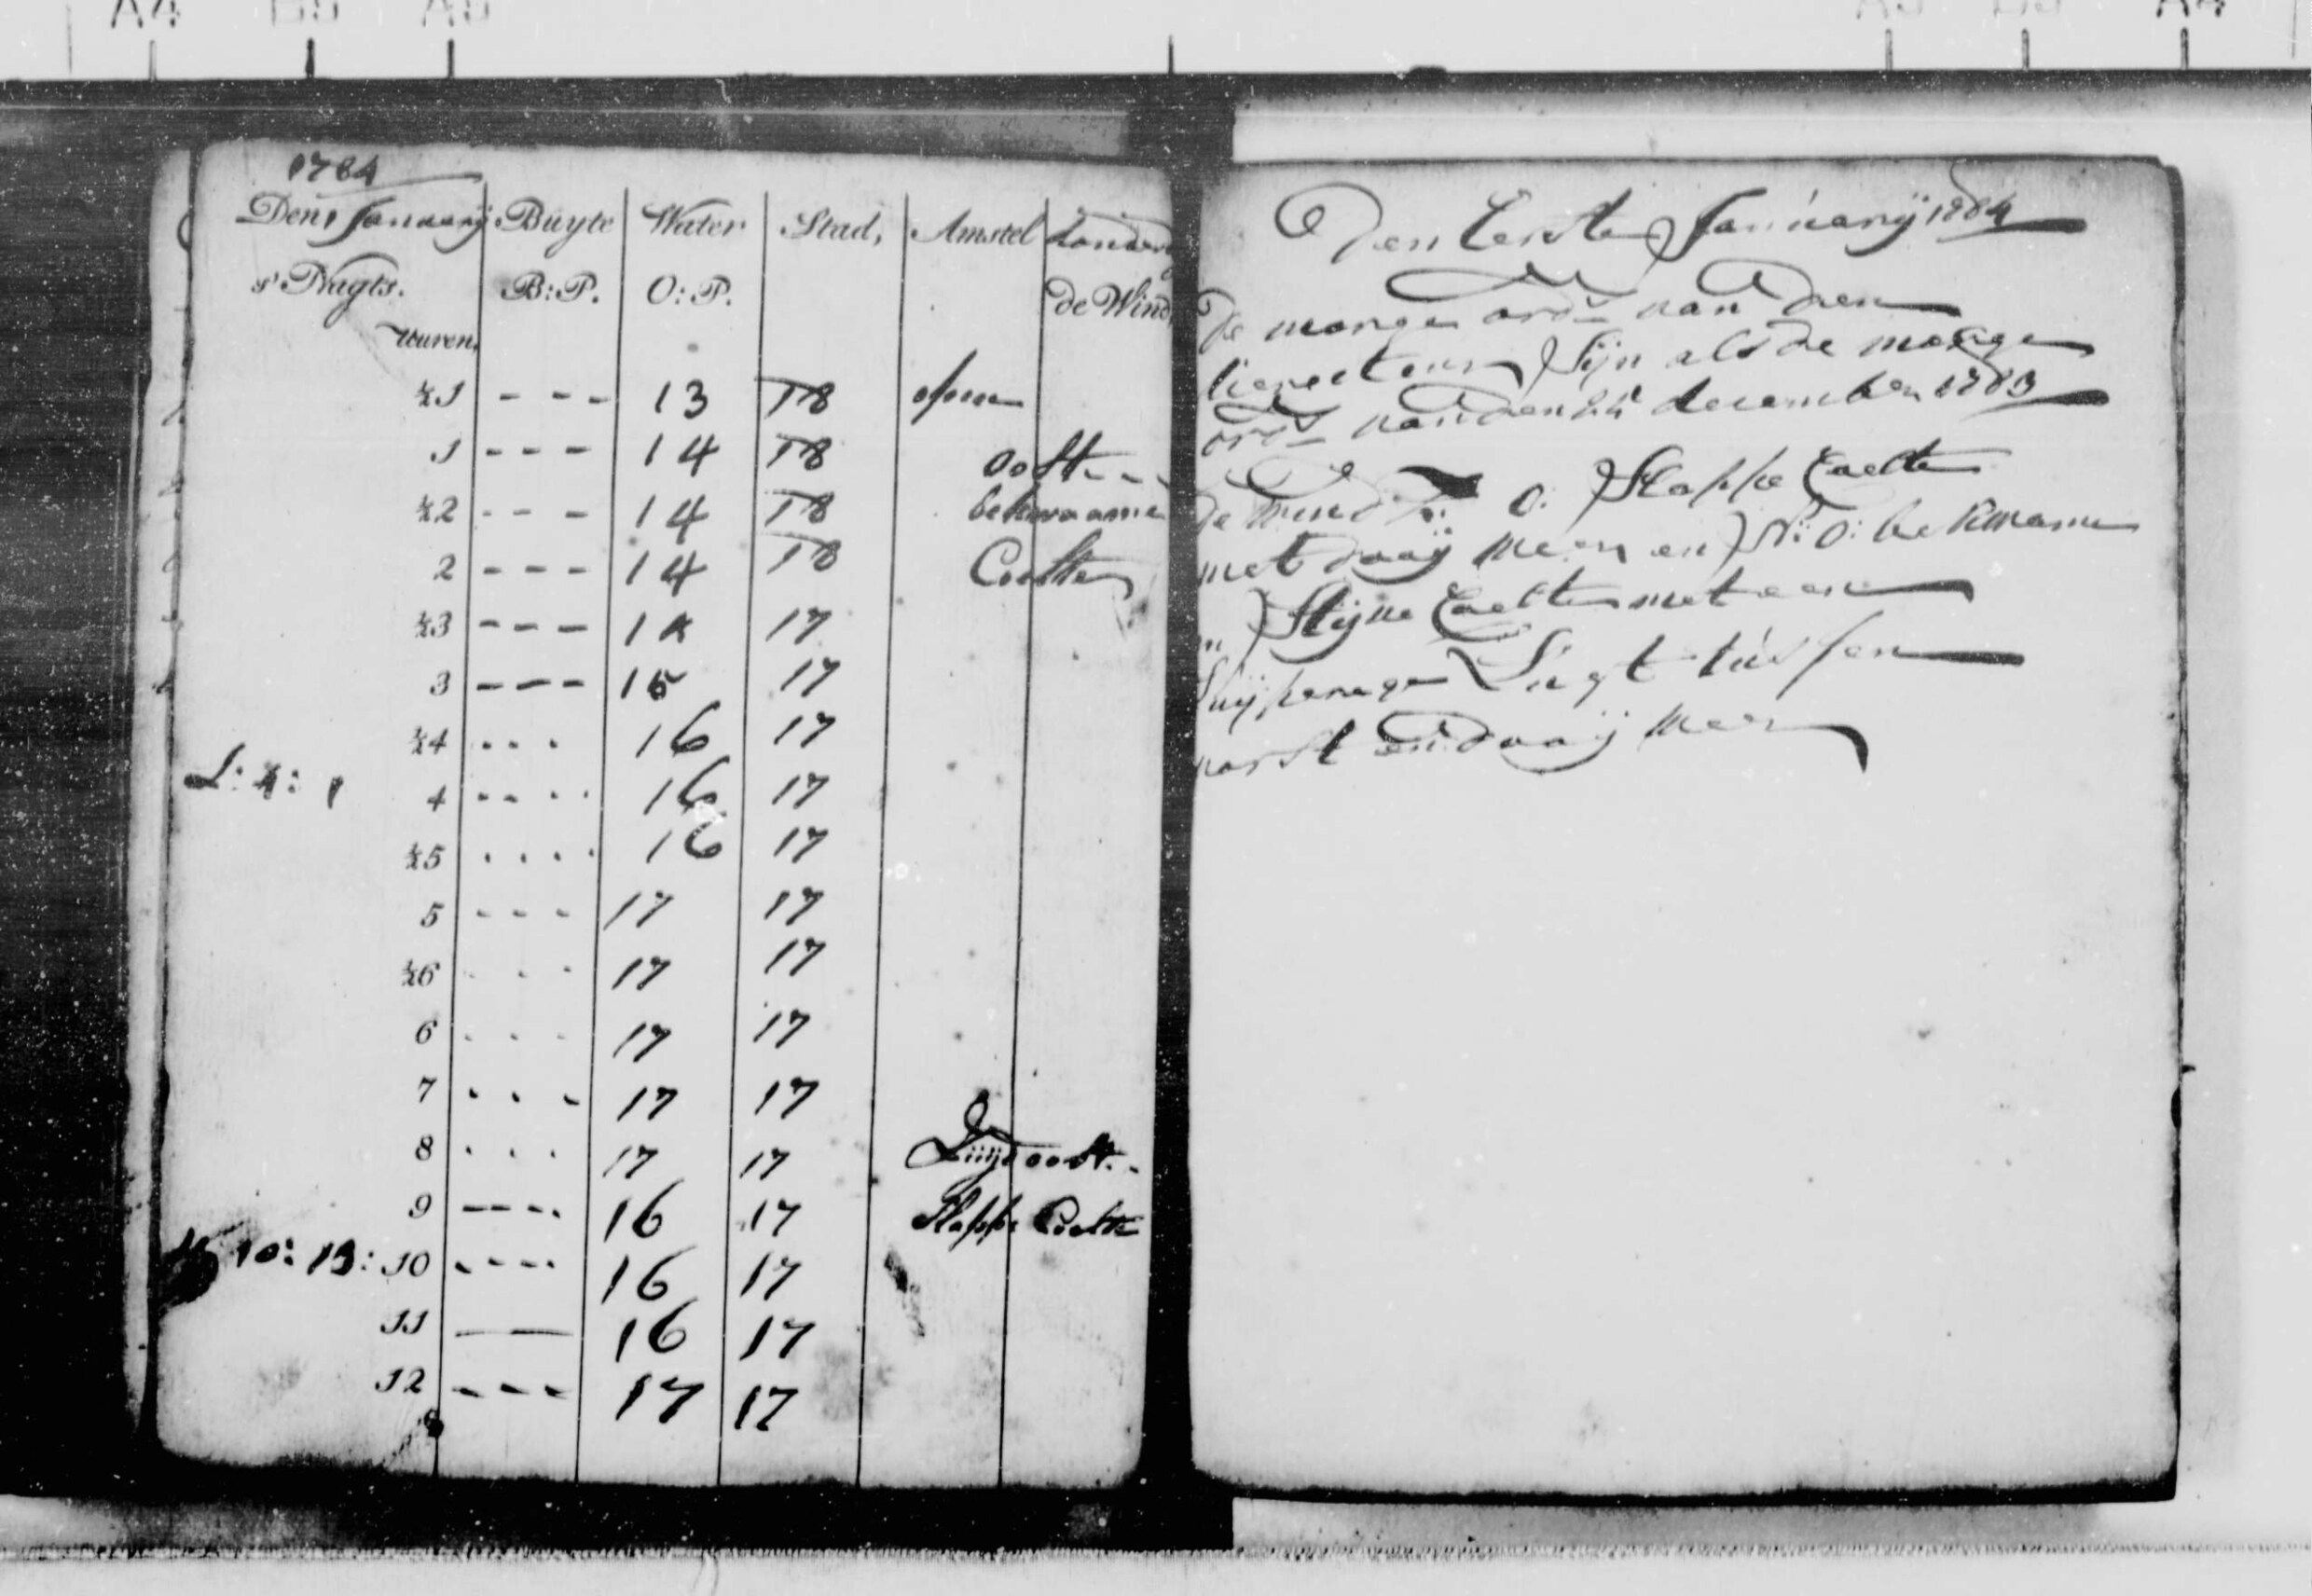 1784
Den 1 January Buyte Water Stad, Amstel
s'Nagts. B:P. O:P. de Wind
uuren,
½1 - - - 13 18 open
1 - - - 14 18 oost - -
½2 - - - 14 18 bekwaame
2 - - - 14 18 Coelte
½3 - - - 14 17
3 - - - 15 17
½4 . . . 16 17
L: 4: 1 4 - - . . 16 17
½5 . . . . 16 17
5 - - - 17 17
½6 . . . 17 17
6 . . . 17 17
7 . . . 17 17
8 . . . 17 17 Zuijd oost. -
9 - - - . 16 17 Slappe Coelte
10: 13: 10 - - - . 16 17
11 — — 16 17
12 - - - 17 17
Den Eerste January 1784
De morge ordr van den
Sijn als de morge
ordr van den december 1783
de Wind O: Slappe Coelte
met daaij Weer en N: O: bekwame
Stijve Coelte met een
Lugt tussen
vorst en daaij Weer